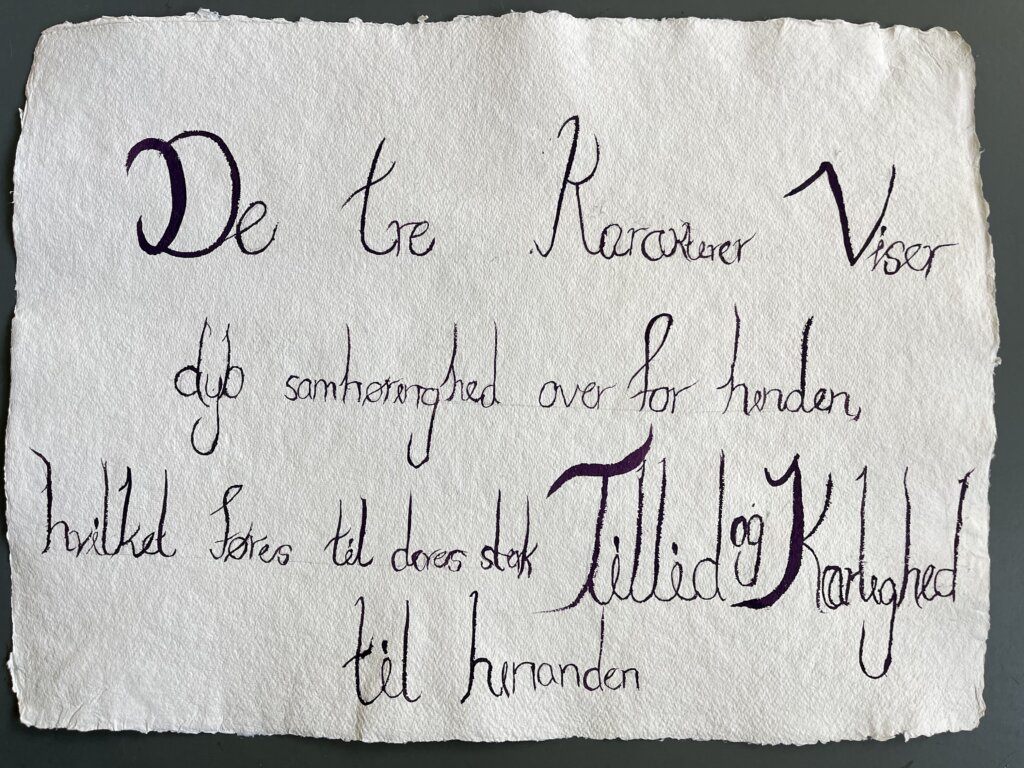 De tre Karakterer Viser
dyb samhørenghed over for hinden,
hvilket føres til deres sterk Tillid og Kærlighed
til hinanden